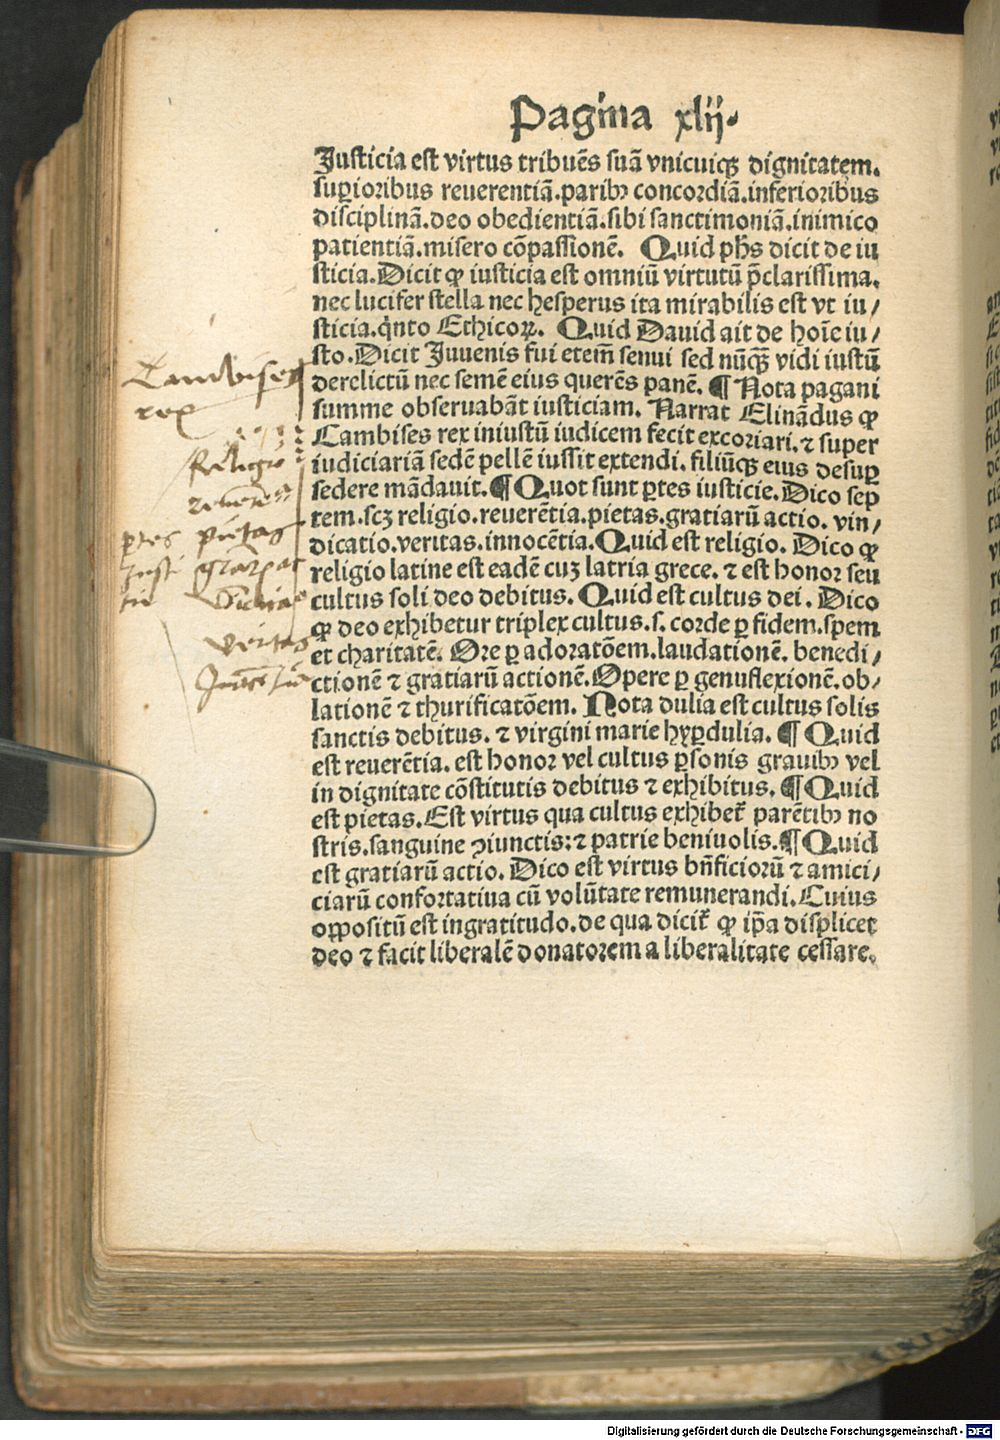 Pagina xlij.
Iusticia est virtus tribuēs suā vnicuiqꝫ dignitatem.
suꝑioribus reuerentiā.paribꝰ concordiā.inferioribus
disciplinā.deo obedientiā.sibi sanctimoniā.inimico
patientiā.misero cōpassionē. Quid ph̄s dicit de iu
sticia.Dicit ꝙ iusticia est omniū virtutū p̄clarissima.
nec lucifer stella nec hesperus ita mirabilis est vt iu/
sticia.q̇nto Ethicoꝝ. Quid Dauid ait de hoīe iu/
sto.Dicit Iuuenis fui etem̄ senui sed nūqꝫ vidi iustū
derelictū nec semē eius querēs panē. ¶ Nota pagani
summe obseruabāt iusticiam. Narrat Elinādus ꝙ
Cambises rex iniustū iudicem fecit excoriari.⁊ super
iudiciariā sedē pellē iussit extendi.filiūqꝫ eius desuꝑ
sedere mādauit.¶ Quot sunt ꝑtes iusticie.Dico sep
tem.scꝫ religio.reuerētia.pietas.gratiarū actio. vin/
dicatio.veritas.innocētia.Quid est religio. Dico ꝙ
religio latine est eadē cuꝫ latria grece.⁊ est honor seu
cultus soli deo debitus. Quid est cultus dei. Dico
ꝙ deo exhibetur triplex cultus.s. corde ꝑ fidem.spem
et charitatē. Ore ꝑ adoratōem.laudationē. benedi/
ctionē ⁊ gratiarū actionē.Opere ꝑ genuflexionē.ob/
lationē ⁊ thurificatōem. Nota dulia est cultus solis
sanctis debitus. ⁊ virgini marie hyꝑdulia. ¶ Quid
est reuerētia. est honor vel cultus ꝑsonis grauibꝰ vel
in dignitate cōstitutis debitus ⁊ exhibitus. ¶ Quid
est pietas.Est virtus qua cultus exhibet᷑ parētibꝰ no
stris.sanguine ꝯiunctis:⁊ patrie beniuolis.¶ Quid
est gratiarū actio. Dico est virtus bn̄ficiorū ⁊ amici/
ciarū confortatiua cū volūtate remunerandi.Cuius
oppositū est ingratitudo.de qua dicit᷑ ꝙ ip̄a displicet
deo ⁊ facit liberalē donatorem a liberalitate cessare.
Cambises
rex
Religio
reueren
ꝑtes pietas
Justi
tie
veritas
Digitalisierung gefördert durch die Deutsche Forschungsgemeinschaft - DFG